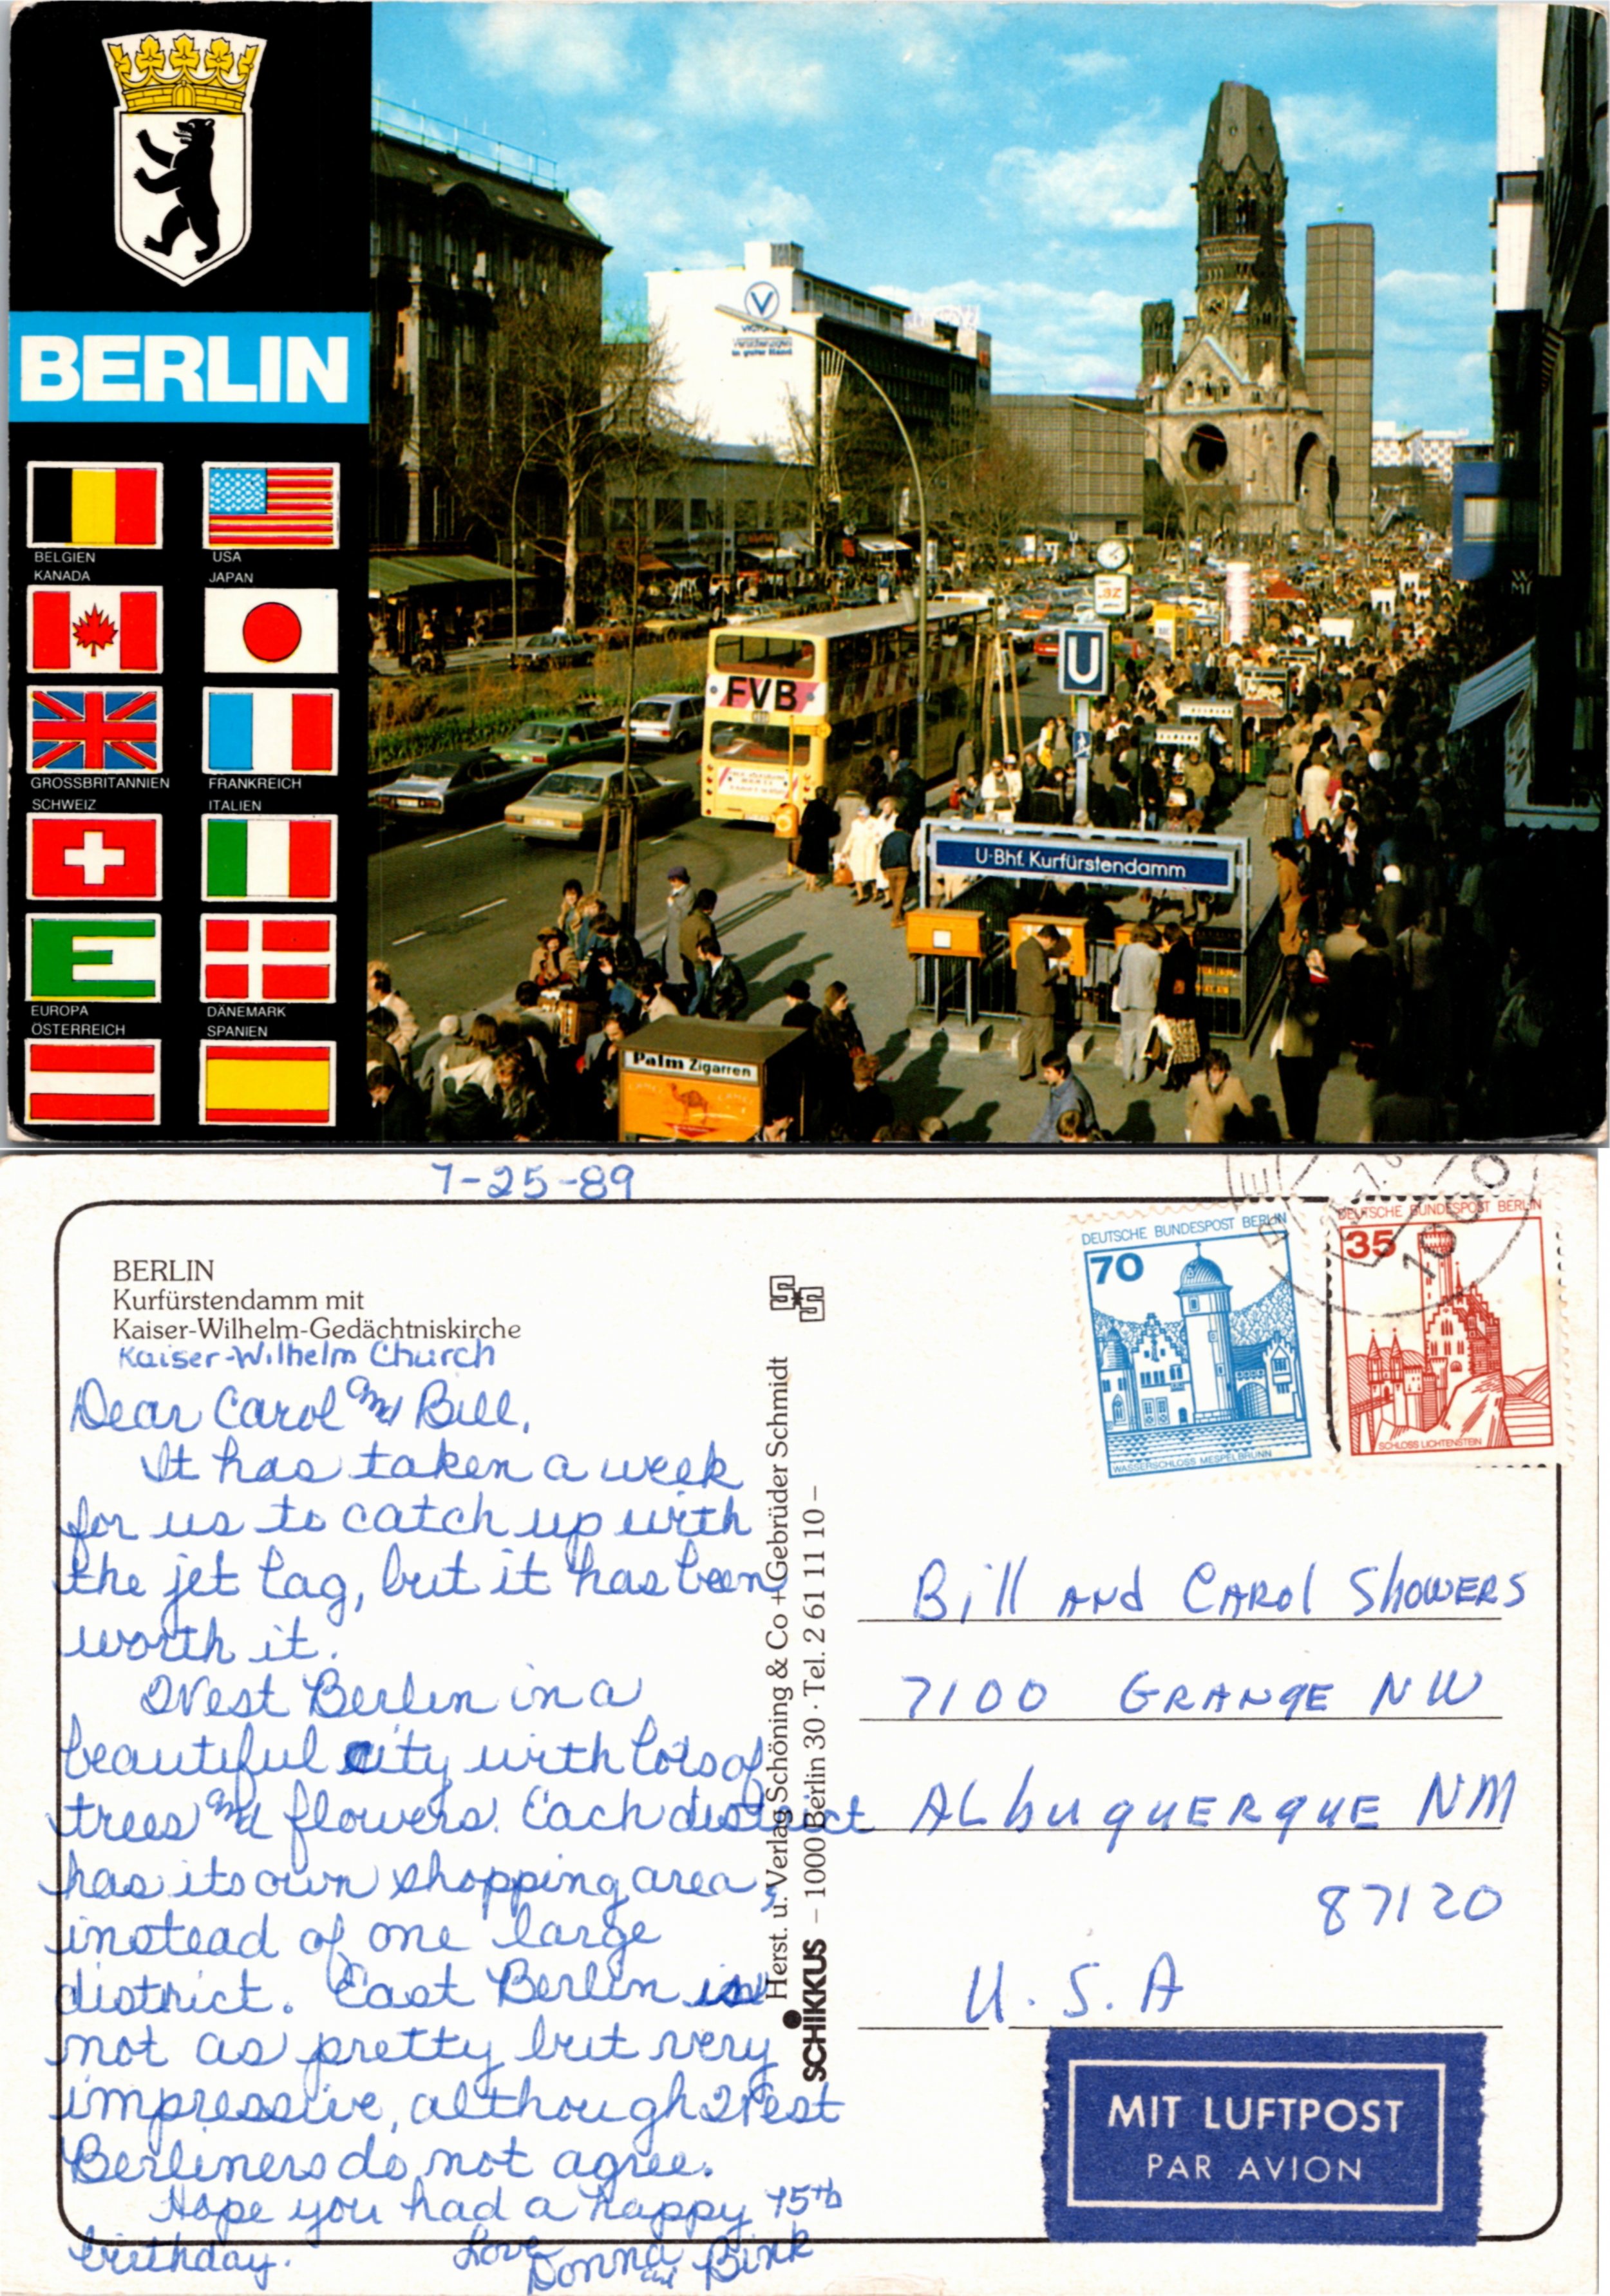 BERLIN
BELGIEN
USA
KANADA
JAPAN
GROSSBRITANNIEN
FRANKREICH
SCHWEIZ
ITALIEN
EUROPA
DÄNEMARK
ÖSTERREICH
SPANIEN
V
FVB
BZ
U
U-Bhf. Kurfürstendamm
Palm Zigarren
CAMEL
7-25-89
BERLIN
Kurfürstendamm mit
Kaiser-Wilhelm-Gedächtniskirche
Kaiser-Wilhelm Church
Dear Carol and Bill,
It has taken a week
for us to catch up with
the jet lag, but it has been
worth it.
West Berlin in a
beautiful city with lots of
trees and flowers. Each district
has its own shopping area,
instead of one large
district. East Berlin is
not as pretty but very
impressive, although West
Berliners do not agree.
Hope you had a happy 75th
birthday.
Love
Donna and Bink
Herst. u. Verlag Schöning & Co + Gebrüder Schmidt
SCHIKKUS – 1000 Berlin 30 · Tel. 2 61 11 10 –
DEUTSCHE BUNDESPOST BERLIN
70
WASSERSCHLOSS MESPELBRUNN
DEUTSCHE BUNDESPOST BERLIN
35
SCHLOSS LICHTENSTEIN
1000
Bill AND CAROL SHOWERS
7100 GRANGE NW
ALbuquERquE NM
87120
U.S.A
MIT LUFTPOST
PAR AVION